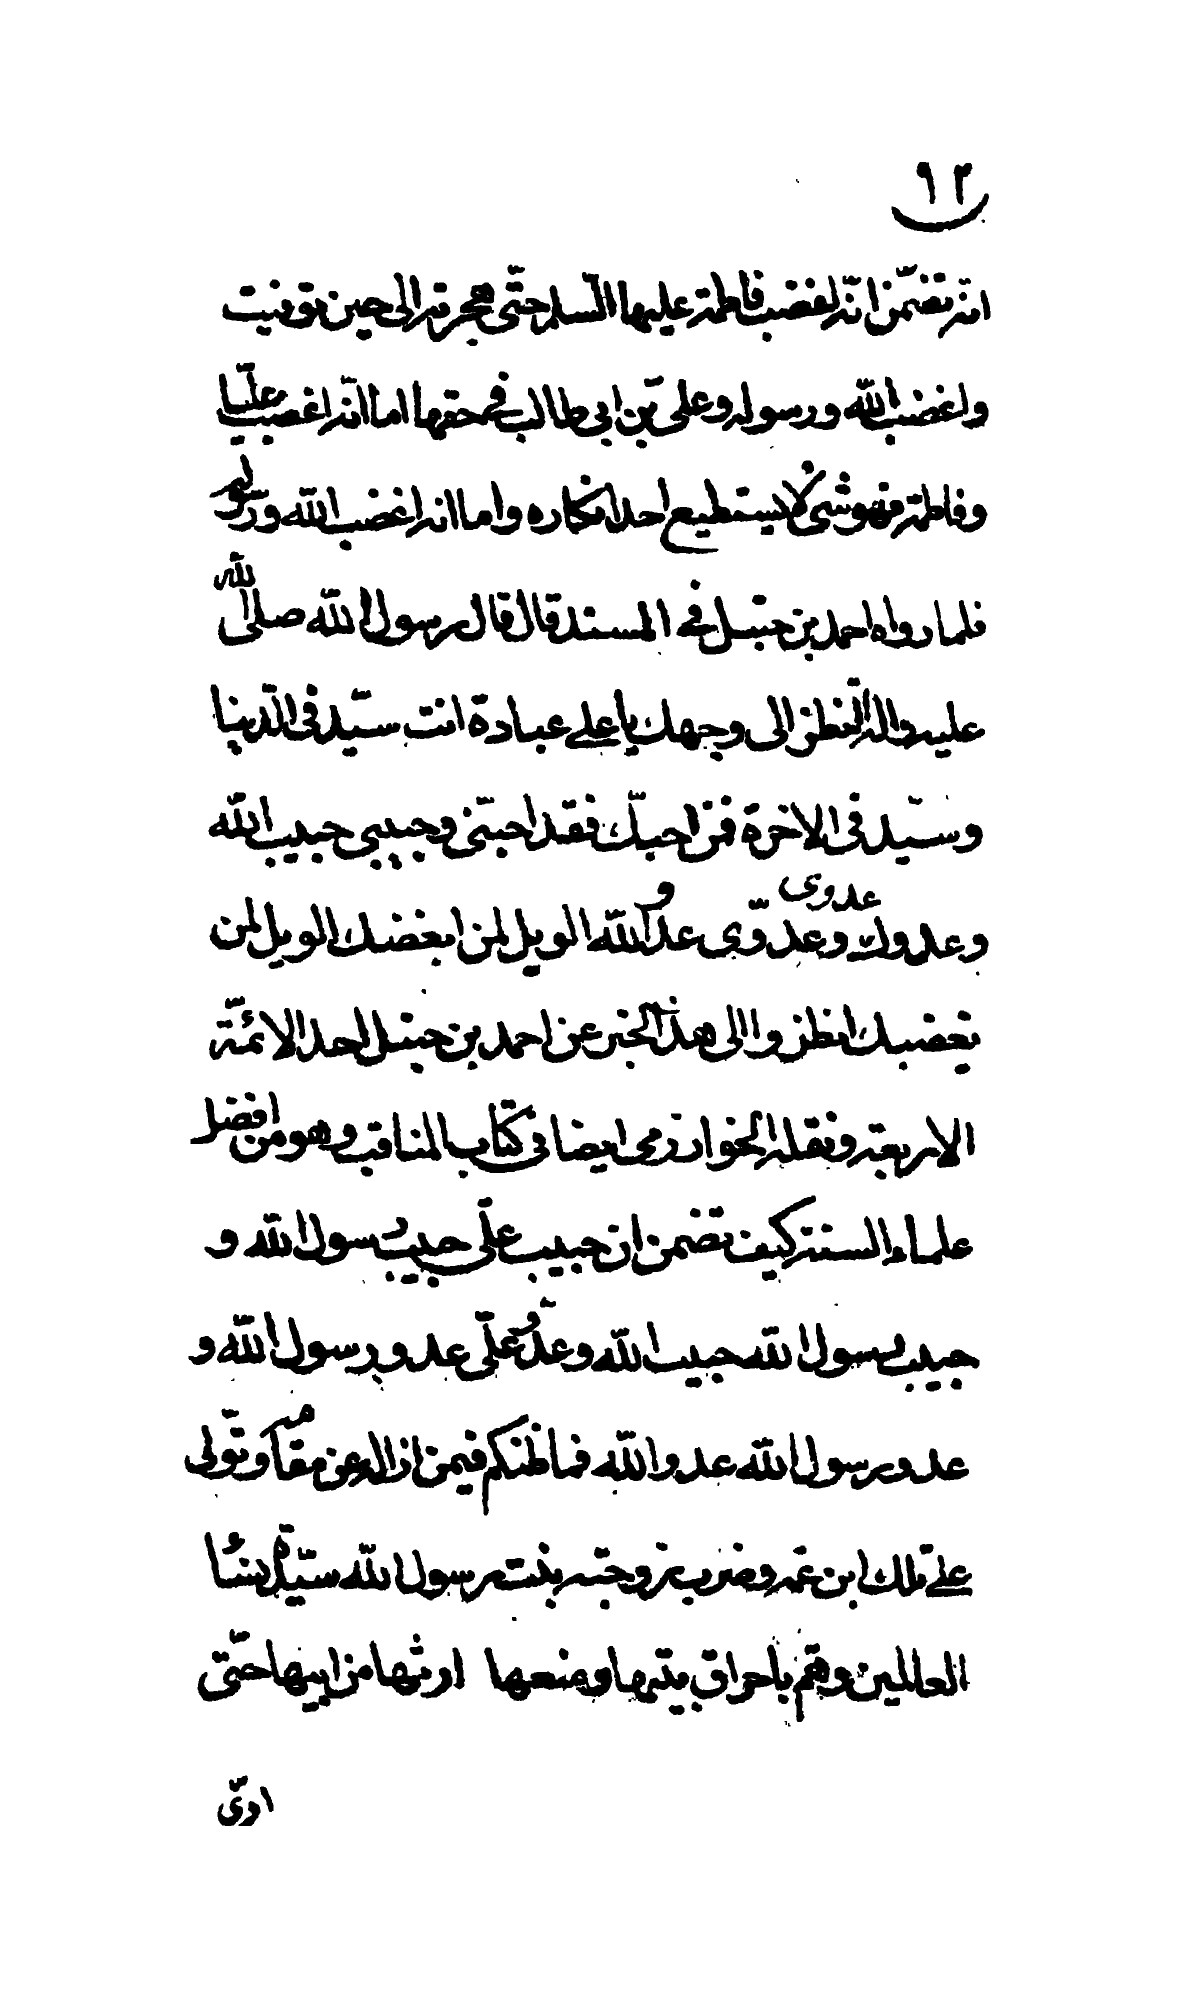 ٩٢
انه تضمن انه لغضب فاطمة عليها السلم حتى هجرته الى حين توفيت
واغضب الله ورسوله وعلى بن ابي طالب في حقها اما انه اغضب عليّا
وفاطمة فهو شى لا يستطيع احد انكاره واما انه اغضب الله ورسوله
فلما رواه احمد بن حنبل في المسند قال قال رسول الله صلى الله
عليه واله النظر الى وجهك يا على عبادة انت سيّد في الدنيا
وسيّد في الاخرة من احبّك فقد احبّنى وحبيبى حبيب الله
وعدوك عدوى وعدوّى عدو الله الويل لمن ابغضك الويل لمن
يغضبك انظروا الى هذا الخبر عن احمد بن حنبل احد الائمّة
الاربعة ونقله الخوارزمى ايضا في كتاب المناقب وهو من افضل
علماء السنة كيف تضمن ان حبيب علّى حبيب رسول الله و
حبيب رسول الله حبيب الله وعدوّ علّى عدو رسول الله و
عدو رسول الله عدو الله فما ظنكم فيمن ازاله عن مقامه وتولّى
على تلك ابن عمه وضرب زوجته بنت رسول الله سيّدة نساء
العالمين وهمّ باحراق بيتها ومنعها ارثها من ابيها حتّى
ادّى